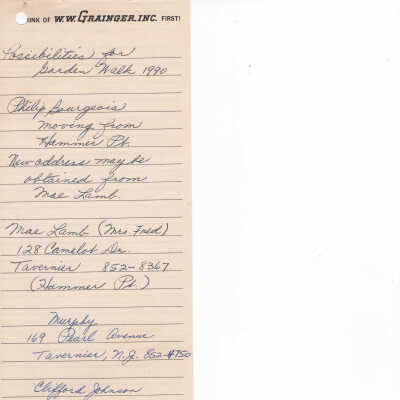 INK OF W.W. GRAINGER, INC. FIRST!
Possibilities for
Garden Walk 1990
Philip Bourgeois
moving from
Hammer Pt.
New address may be
obtained from
Mae Lamb.
Mae Lamb (Mrs. Fred)
128 Camelot Dr.
Tavernier 852-8367
(Hammer Pt.)
Murphy
169 Pearl Avenue
Tavernier,
Clifford Johnson